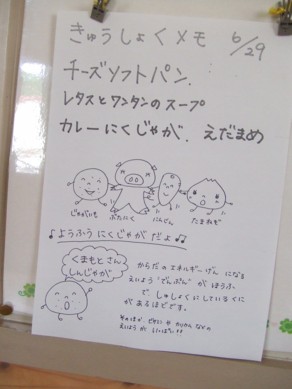 きゅうしょくメモ 6/29
チーズソフトパン.
レタスとワンタンのスープ
カレーにくじゃが. えだまめ
じゃがいも ぶたにく にんじん たまねぎ
♪ようふうにくじゃがだよ♪♫
くまもとさん
しんじゃが
からだのエネルギーげんになる
えいよう"でんぷん"がほうふ
で、しゅしょくにしているくに
があるほどです。
そのほか、ビタミンCや カリウムなどの
えいようがいっぱい!!